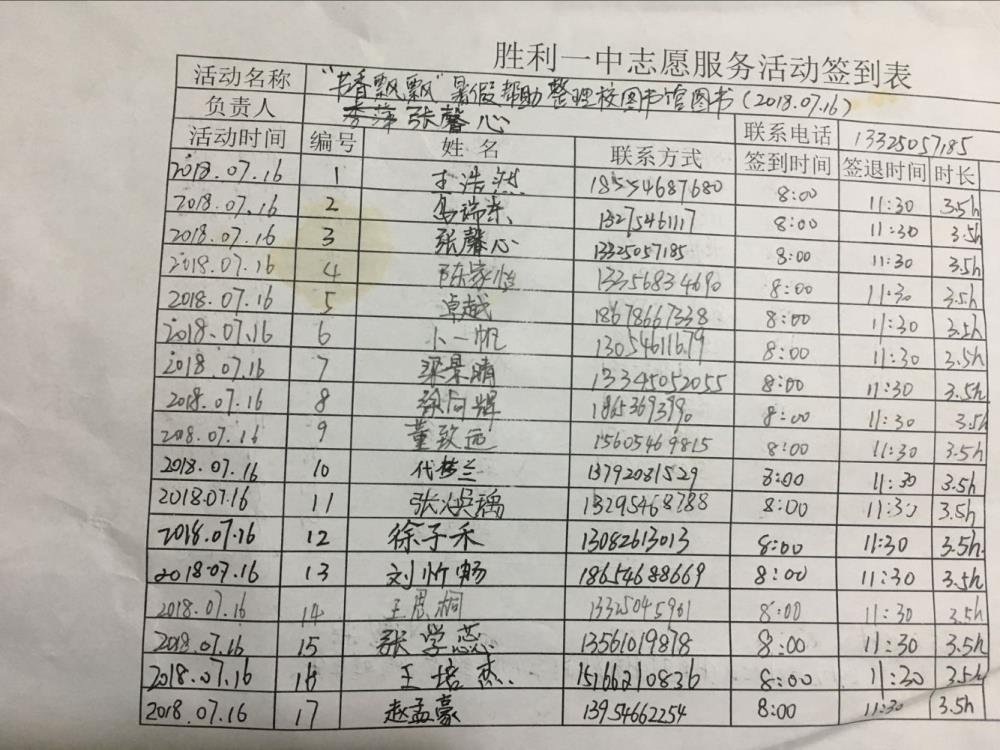 胜利一中志愿服务活动签到表
活动名称 "书香飘飘"暑假帮助整理校图书馆图书(2018.07.16)
负责人 李萍 张馨心 联系电话 13325057185
活动时间 编号 姓名 联系方式 签到时间 签退时间 时长
2018.07.16 1 王浩然 18554687680 8:00 11:30 3.5h
2018.07.16 2 瑞 13275461117 8:00 11:30 3.5h
2018.07.16 3 张馨心 13325057185 8:00 11:30 3.5h
2018.07.16 4 陈家怡 13356834690 8:00 11:30 3.5h
2018.07.16 5 卓越 18678667338 8:00 11:30 3.5h
2018.07.16 6 一帆 13054611679 8:00 11:30 3.5h
2018.07.16 7 梁景晴 13345052055 8:00 11:30 3.5h
2018.07.16 8 徐向辉 1865369390 8:00 11:30 3.5h
2018.07.16 9 董致远 15605469815 8:00 11:30 3.5h
2018.07.16 10 代梦兰 13792081529 8:00 11:30 3.5h
2018.07.16 11 张焕瑀 13295468788 8:00 11:30 3.5h
2018.07.16 12 徐子禾 13082613013 8:00 11:30 3.5h
2018.07.16 13 刘忻畅 18654688669 8:00 11:30 3.5h
2018.07.16 14 王 桐 13325045961 8:00 11:30 3.5h
2018.07.16 15 张学蕊 13561019878 8:00 11:30 3.5h
2018.07.16 16 王培杰 15166210836 8:00 11:30 3.5h
2018.07.16 17 赵孟豪 13954662254 8:00 11:30 3.5h